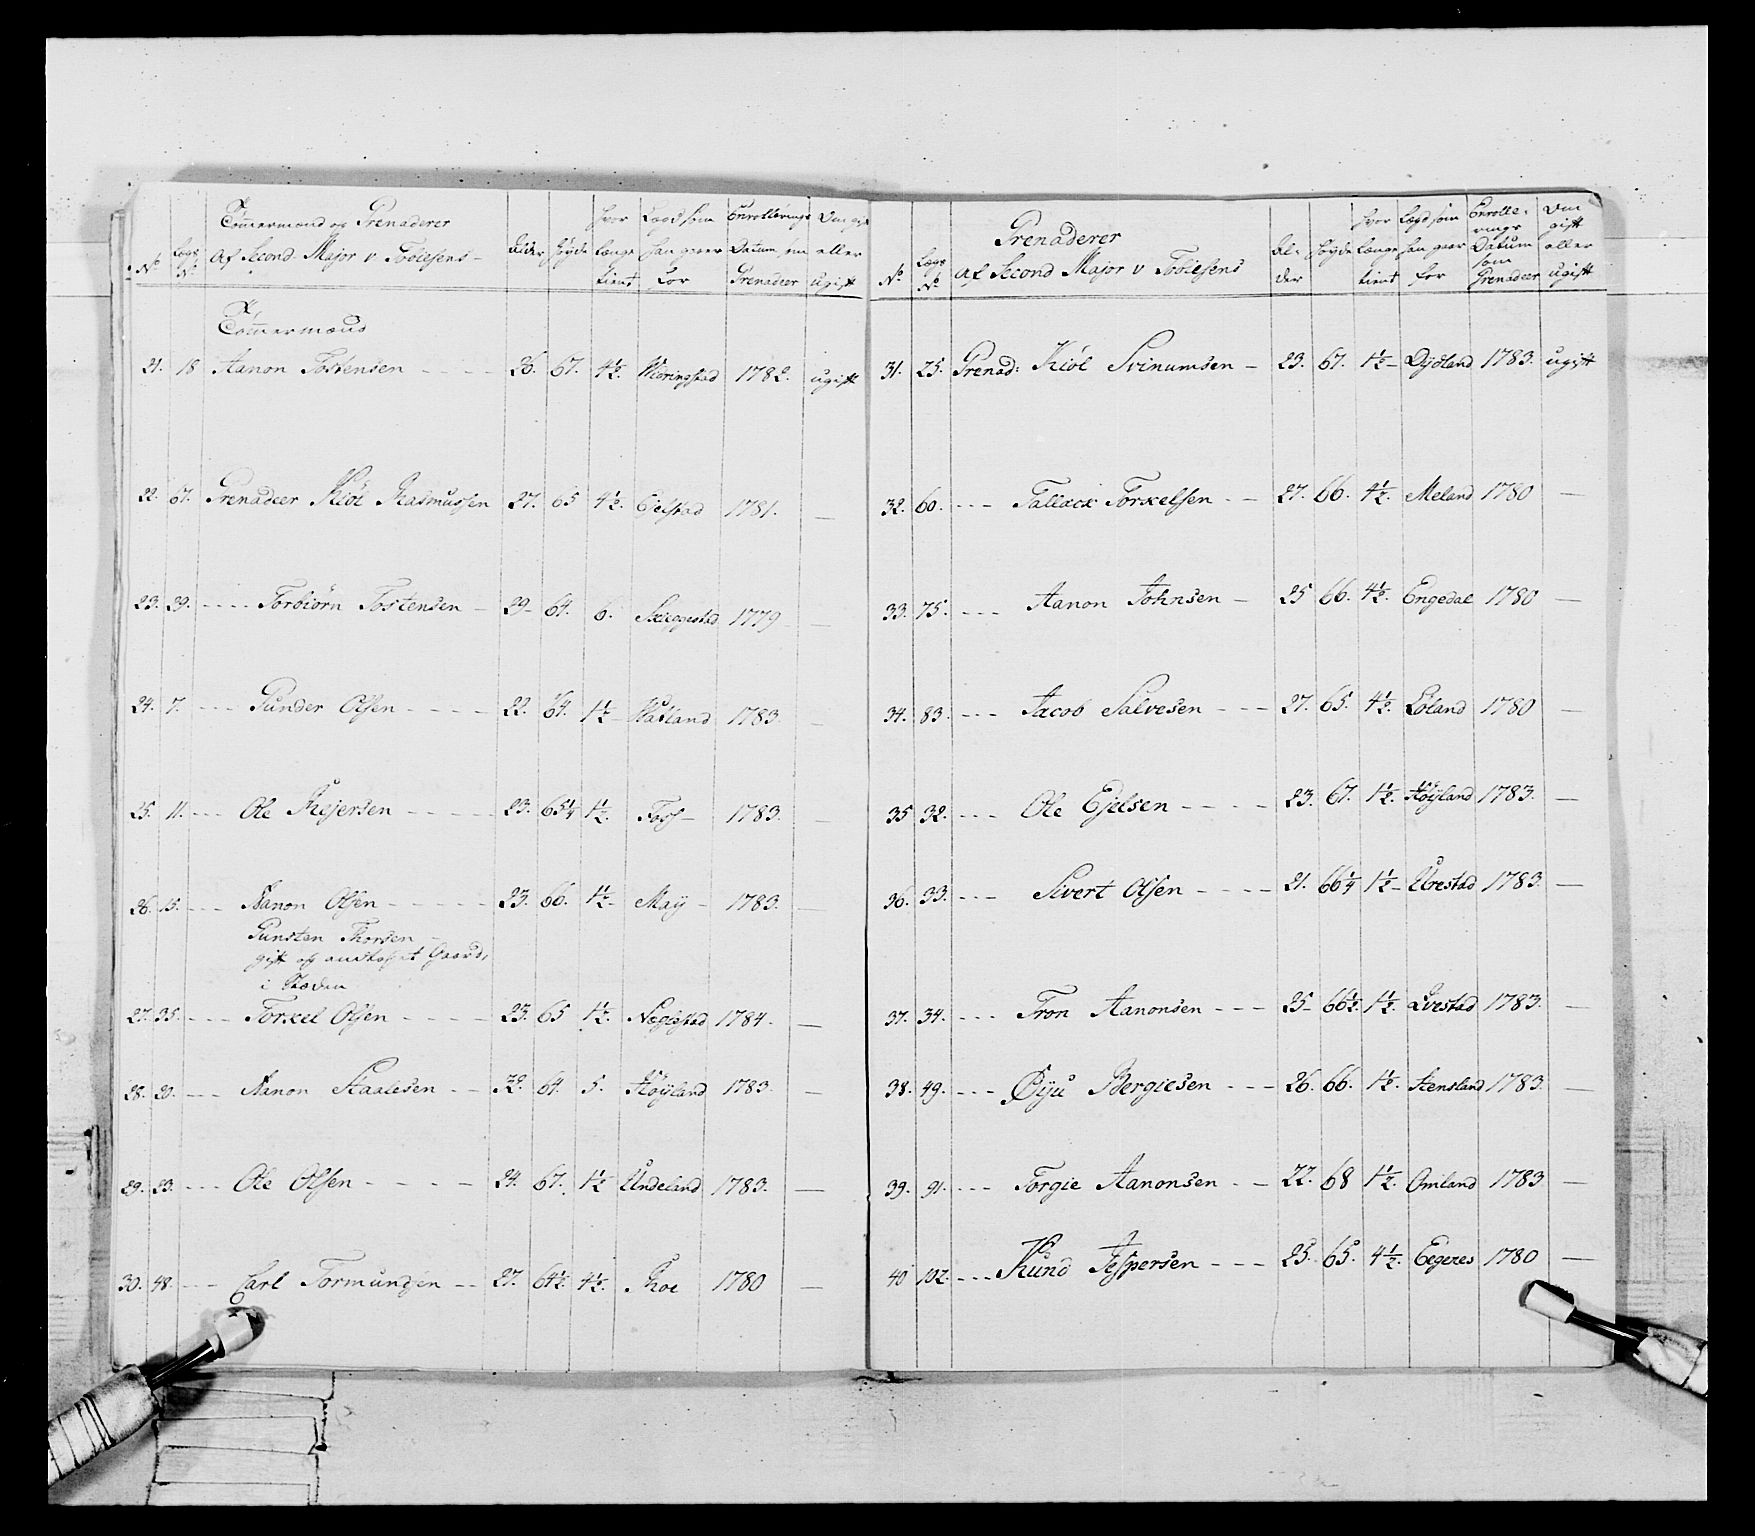 Tømmermænd og Grenaderer
Af Second Major v Tobiesens
No Lægs No Alder Høyde hvor længe tient Lægd som han staaer for Enrollerings Datum som Grenadeer Om gift eller ugift
Tømmermænd
21. 18 Aanon Tostensen - - - - 26. 67. 4½. 1782. ugift
22. 67. Grenadeer Kiøl Rasmussen 27. 65 4½. Eielstad 1781. —
23. 29. - - - - Torbiørn Tostensen - 29- 64. 6. Skeggestad 1779 —
24. 7. - - - Gunder Olsen - - - - 22. 64. 1½ Hadland 1783. —
25. 11. - - - Ole Rejersen - - - - 23. 65¼ 1½. Foss - 1783. —
26. 15. - - - Aanon Olsen - - - - - 23. 66. 1½- Maÿ - 1783. —
Gunsten Thorsen -
gift og Gaard,
i Steden
27. 35. - - - Torkel Olsen - - - - 23. 65 1½. Neglestad 1784. —
28. 20. - - - Aanon Staalesen - - 32. 64. 5. Høÿland 1783. —
29. 23. - - - Ole Olsen - - - - - 24. 67. 1½ Undeland 1783. —
30. 48. - - - Carl Tormundsen - - 27. 64½. 4½. Roe 1780 —
Grenaderer
Af Second Major v Tobiesens
No Lægs No Alder Høyde hvor længe tient Lægd som han staaer for Enrollerings Datum som Grenadeer Om gift eller ugift
31. 25. Grenad: Kiøl Svinumsen - 23. 67. 1½- Dydland 1783. ugift
32. 60. - - - Tallack Torkelsen - - 27. 66. 4½. Meland 1780 —
33. 75. - - - Aanon Johnsen - 25 66. 4½. Engedal 1780 —
34. 83. - - - Jacob Salvesen - - - 27. 65. 4½. Løland 1780 —
35 32. - - - Ole Ejelsen - - - - 23. 67. 1½. Høÿland 1783. —
36. 33. - - - Sivert Olsen - - - - 21. 66¼ 1½- Urestad 1783. —
37. 34. - - - Tron Aanonsen - - - 25- 66½. 1½. Qvestad 1783. —
38. 49. - - - Øÿu Bergiesen - - - 26. 66. 1½. Stensland 1783. —
39. 91. - - - Torgie Aanonsen - - 22. 68 1½. Omland 1783 —
40 102. - - - Knud Jespersen - - - 25. 65. 4½. Eegenes 1780 —